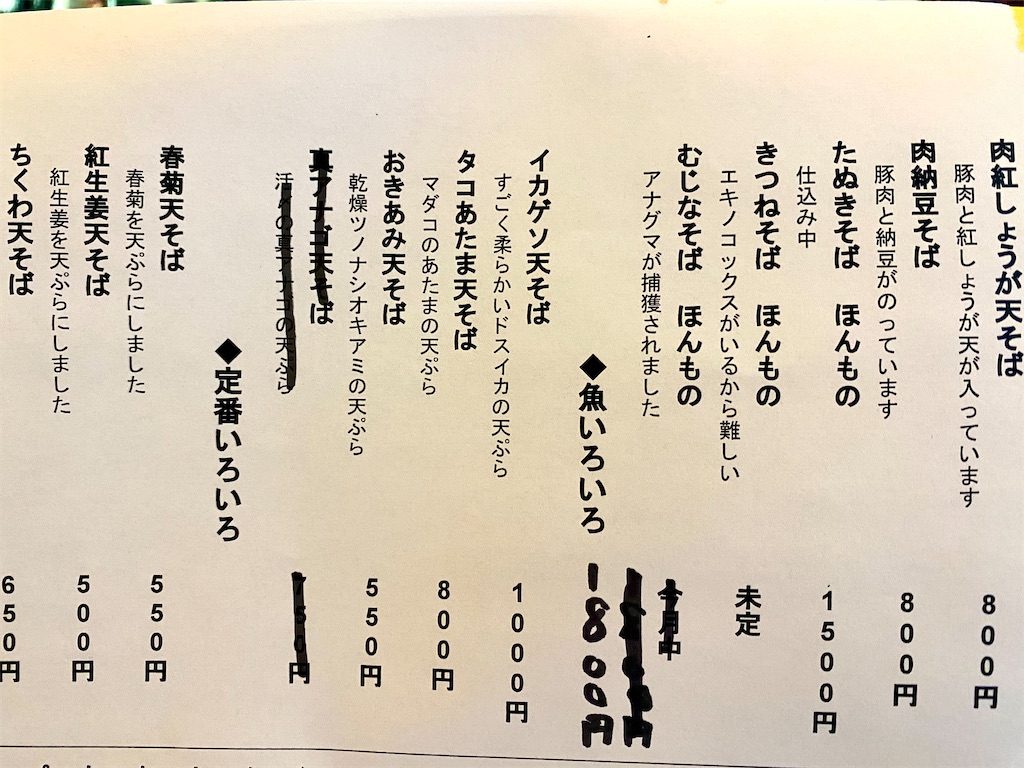 肉紅しょうが天そば
豚肉と紅しょうが天が入っています
800円
肉納豆そば
豚肉と納豆がのっています
800円
たぬきそば ほんもの
仕込み中
1500円
きつねそば ほんもの
エキノコックスがいるから難しい
未定
むじなそば ほんもの
アナグマが捕獲されました
今月中
1800円
◆魚いろいろ
イカゲソ天そば
すごく柔らかいドスイカの天ぷら
1000円
タコあたま天そば
マダコのあたまの天ぷら
800円
おきあみ天そば
乾燥ツノナシオキアミの天ぷら
550円
真アナゴ天そば
活〆の真アナゴの天ぷら
750円
◆定番いろいろ
春菊天そば
春菊を天ぷらにしました
550円
紅生姜天そば
紅生姜を天ぷらにしました
500円
ちくわ天そば
650円